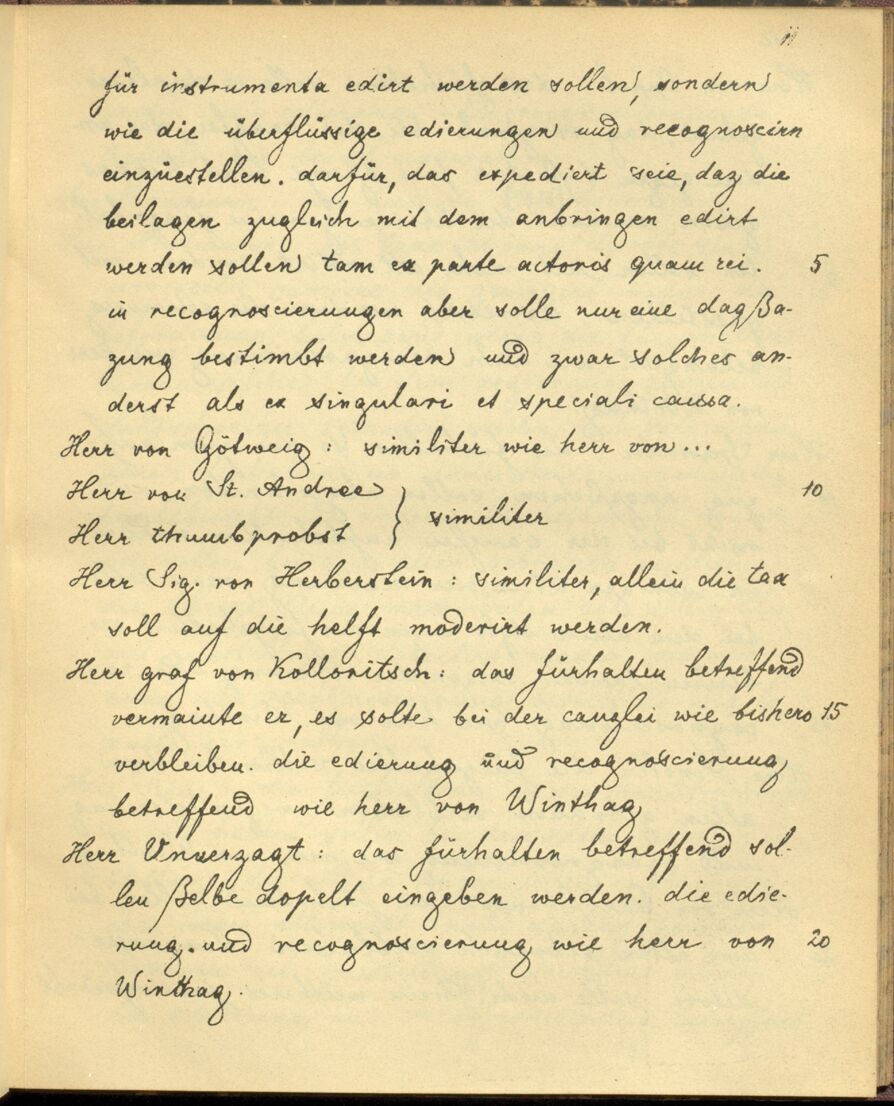 11
für instrumenta edirt werden sollen, sondern
wie die überflüssige edierungen und recognoscirn
einzuestellen. darfür, das expediert seie, daz die
beilagen zugleich mit dem anbringen edirt
werden sollen tam ex parte actoris quam rei. 5
in recognoscierungen aber solle nur eine dagßa-
zung bestimbt werden und zwar solches an-
derst als ex singulari et speciali caussa.
Herr von Götweig: similiter wie herr von...
Herr von St. Andree 10
Herr thumbprobst } similiter
Herr Sig. von Herberstein: similiter, allein die tax
soll auf die helft moderirt werden.
Herr graf von Kollonitsch: das fürhalten betreffend
vermainte er, es solte bei der canzlei wie bishero 15
verbleiben. die edierung und recognoscierung
betreffend wie herr von Winthag
Herr Unverzagt: das fürhalten betreffend sol-
len ßelbe dopelt eingeben werden. die edie-
rung. und recognoscierung wie herr von 20
Winthag.